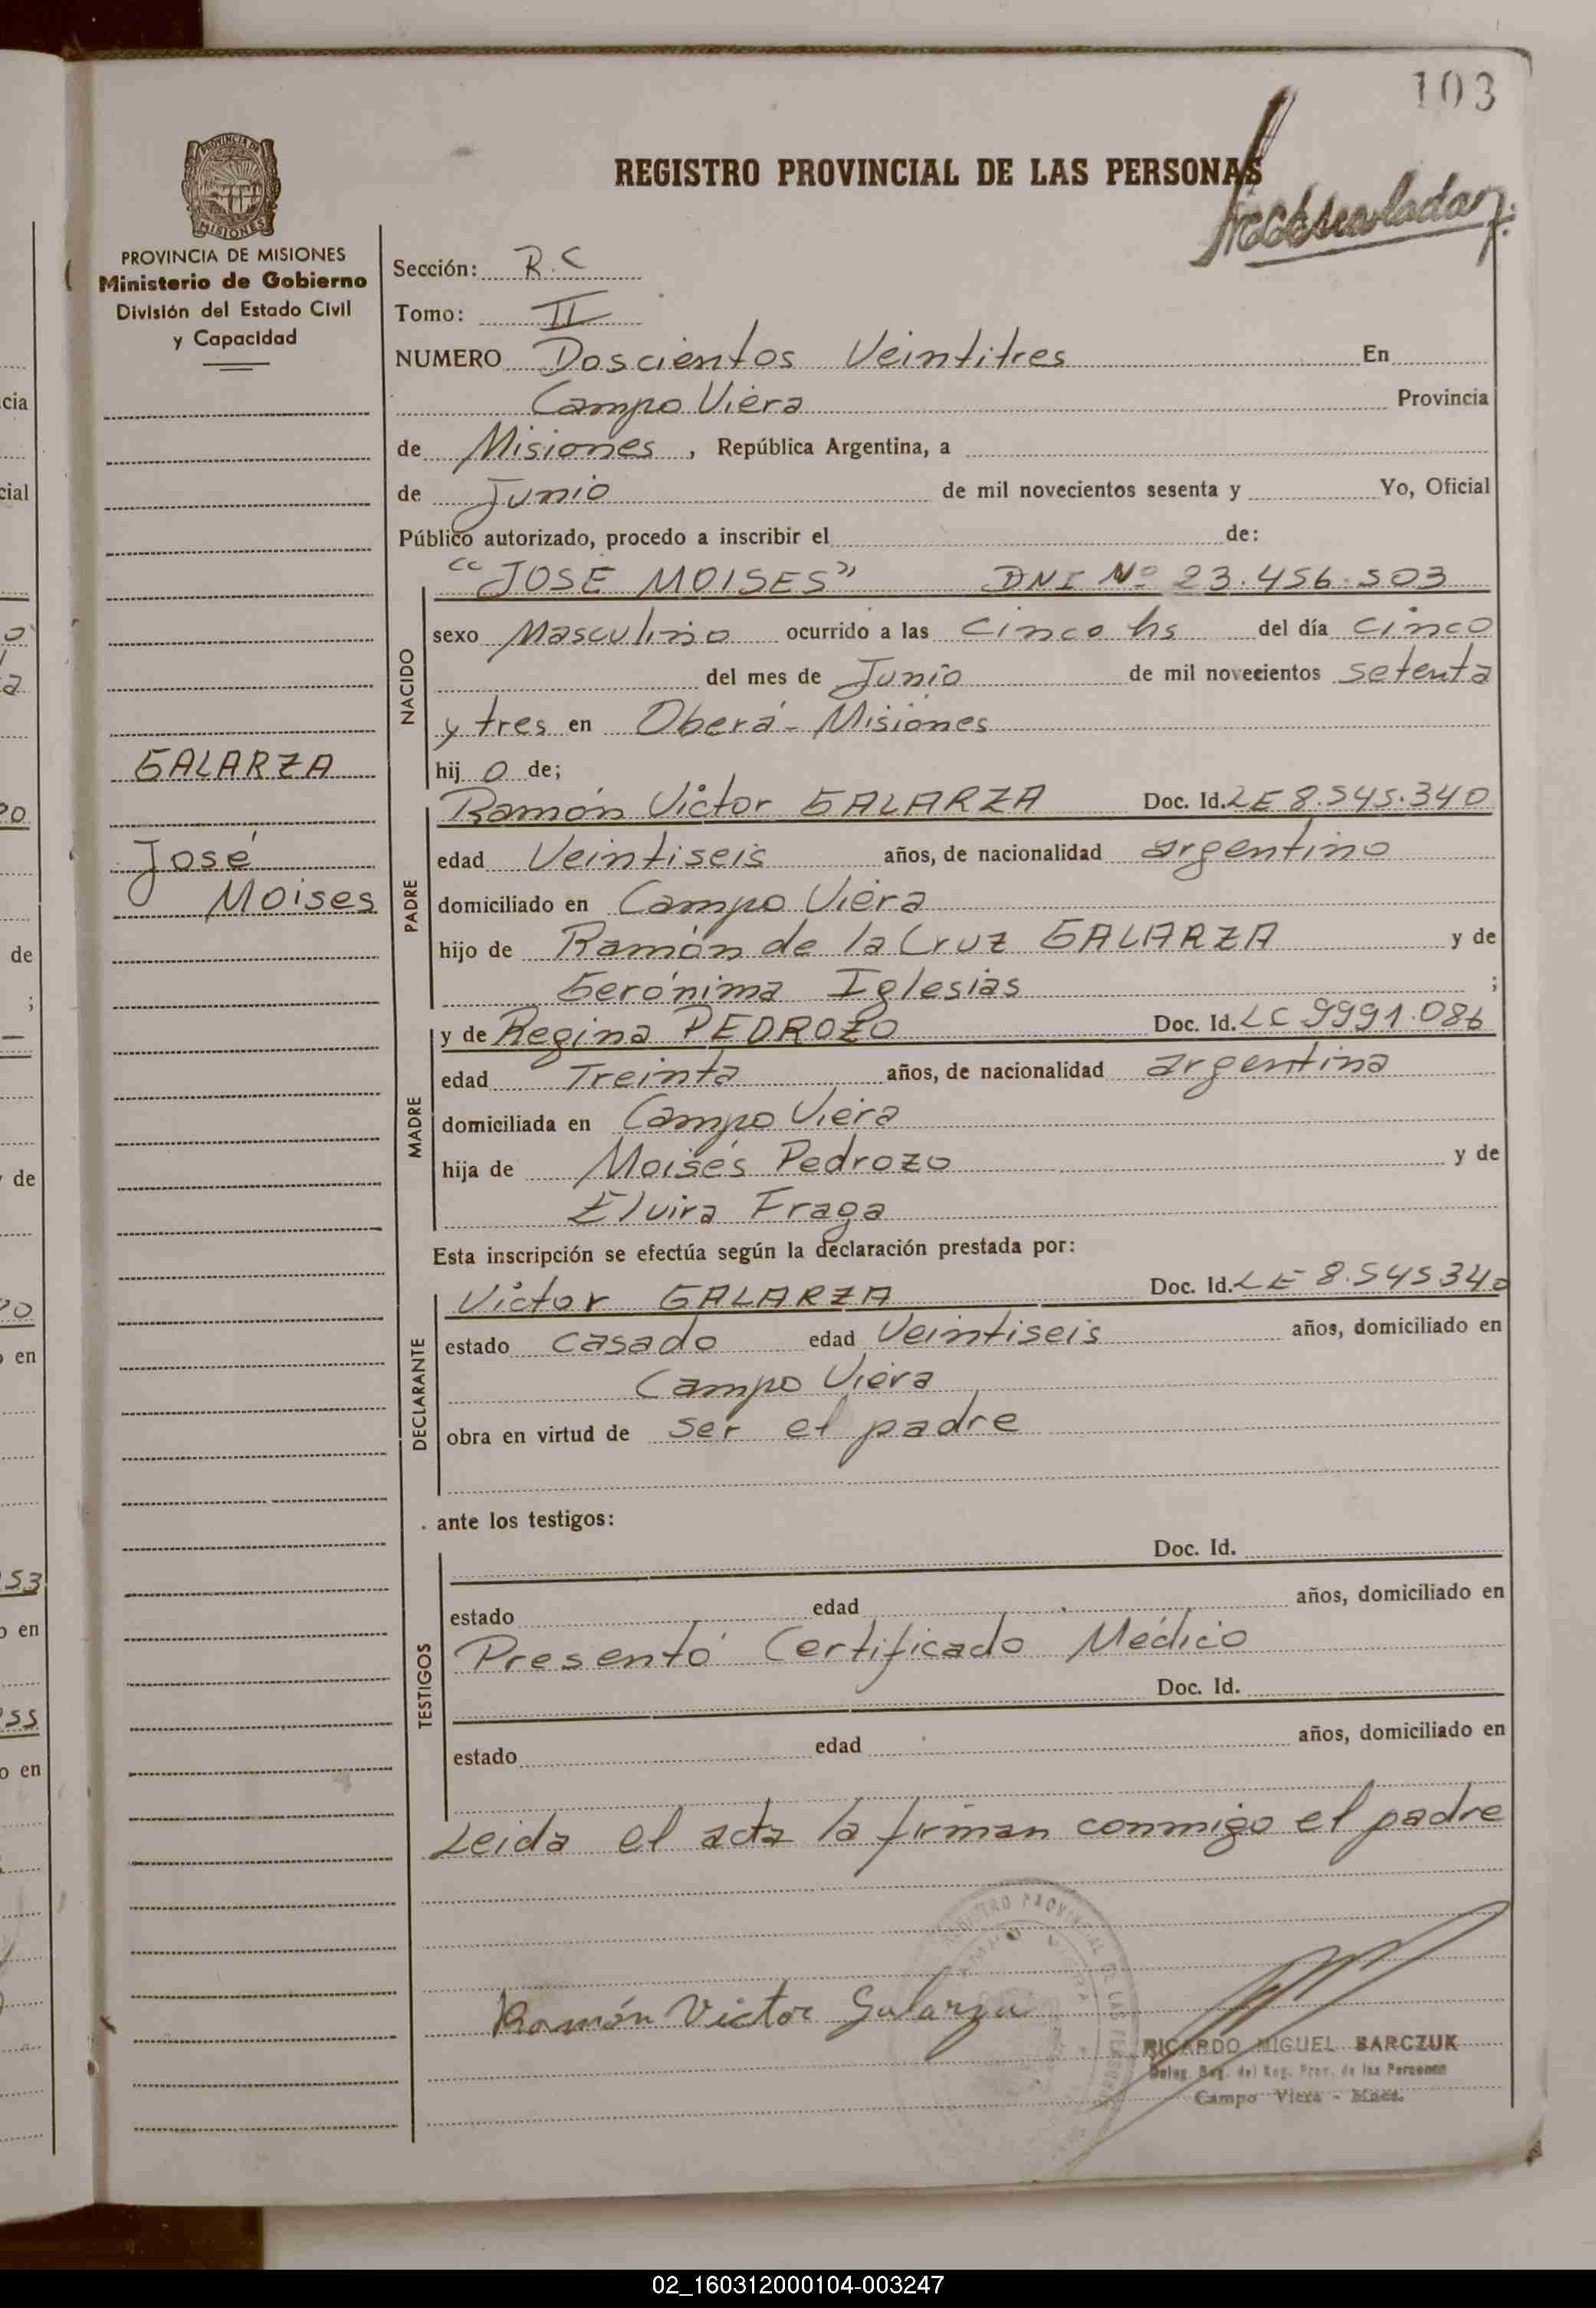 103
REGISTRO PROVINCIAL DE LAS PERSONAS
PROVINCIA DE MISIONES
Ministerio de Gobierno
División del Estado Civil
y Capacidad
Sección: R.C
Tomo: II
NUMERO Doscientos Veintitres En
Campo Viera Provincia
de Misiones, República Argentina, a
de Junio de mil novecientos sesenta y Yo, Oficial
Público autorizado, procedo a inscribir el de:
NACIDO
"JOSE MOISES" DNI Nº 23.456.503
sexo Masculino ocurrido a las cinco hs del día cinco
del mes de Junio de mil novecientos setenta
y tres en Oberá - Misiones
hij o de;
GALARZA
José
Moises
PADRE
Ramón Victor GALARZA Doc. Id. LE 8.545.340
edad Veintiseis años, de nacionalidad argentino
domiciliado en Campo Viera
hijo de Ramón de la Cruz GALARZA y de
Gerónima Iglesias ;
MADRE
y de Regina PEDROZO Doc. Id. LC 9991.086
edad Treinta años, de nacionalidad argentina
domiciliada en Campo Viera
hija de Moisés Pedrozo y de
Elvira Fraga
Esta inscripción se efectúa según la declaración prestada por:
DECLARANTE
Victor GALARZA Doc. Id. LE 8.545340
estado casado edad Veintiseis años, domiciliado en
Campo Viera
obra en virtud de ser el padre
ante los testigos:
TESTIGOS
Doc. Id.
estado edad años, domiciliado en
Presentó Certificado Médico
Doc. Id.
estado edad años, domiciliado en
Leida el acta la firman conmigo el padre
Ramón Victor Galarza
RICARDO MIGUEL BARCZUK
Deleg. del Reg. Prov. de las Personas
Campo Viera - Mnes.
cia
cial
de
;
de
en
53
o en
55
o en
02_160312000104-003247